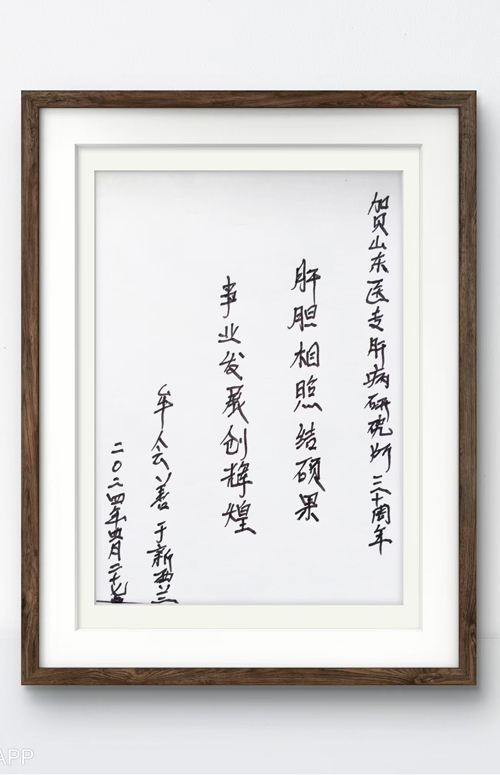 贺山东医专肝病研究所三十周年
肝胆相照结硕果
事业发展创辉煌
牟会善于新西兰
二〇二四年四月二十七
APP